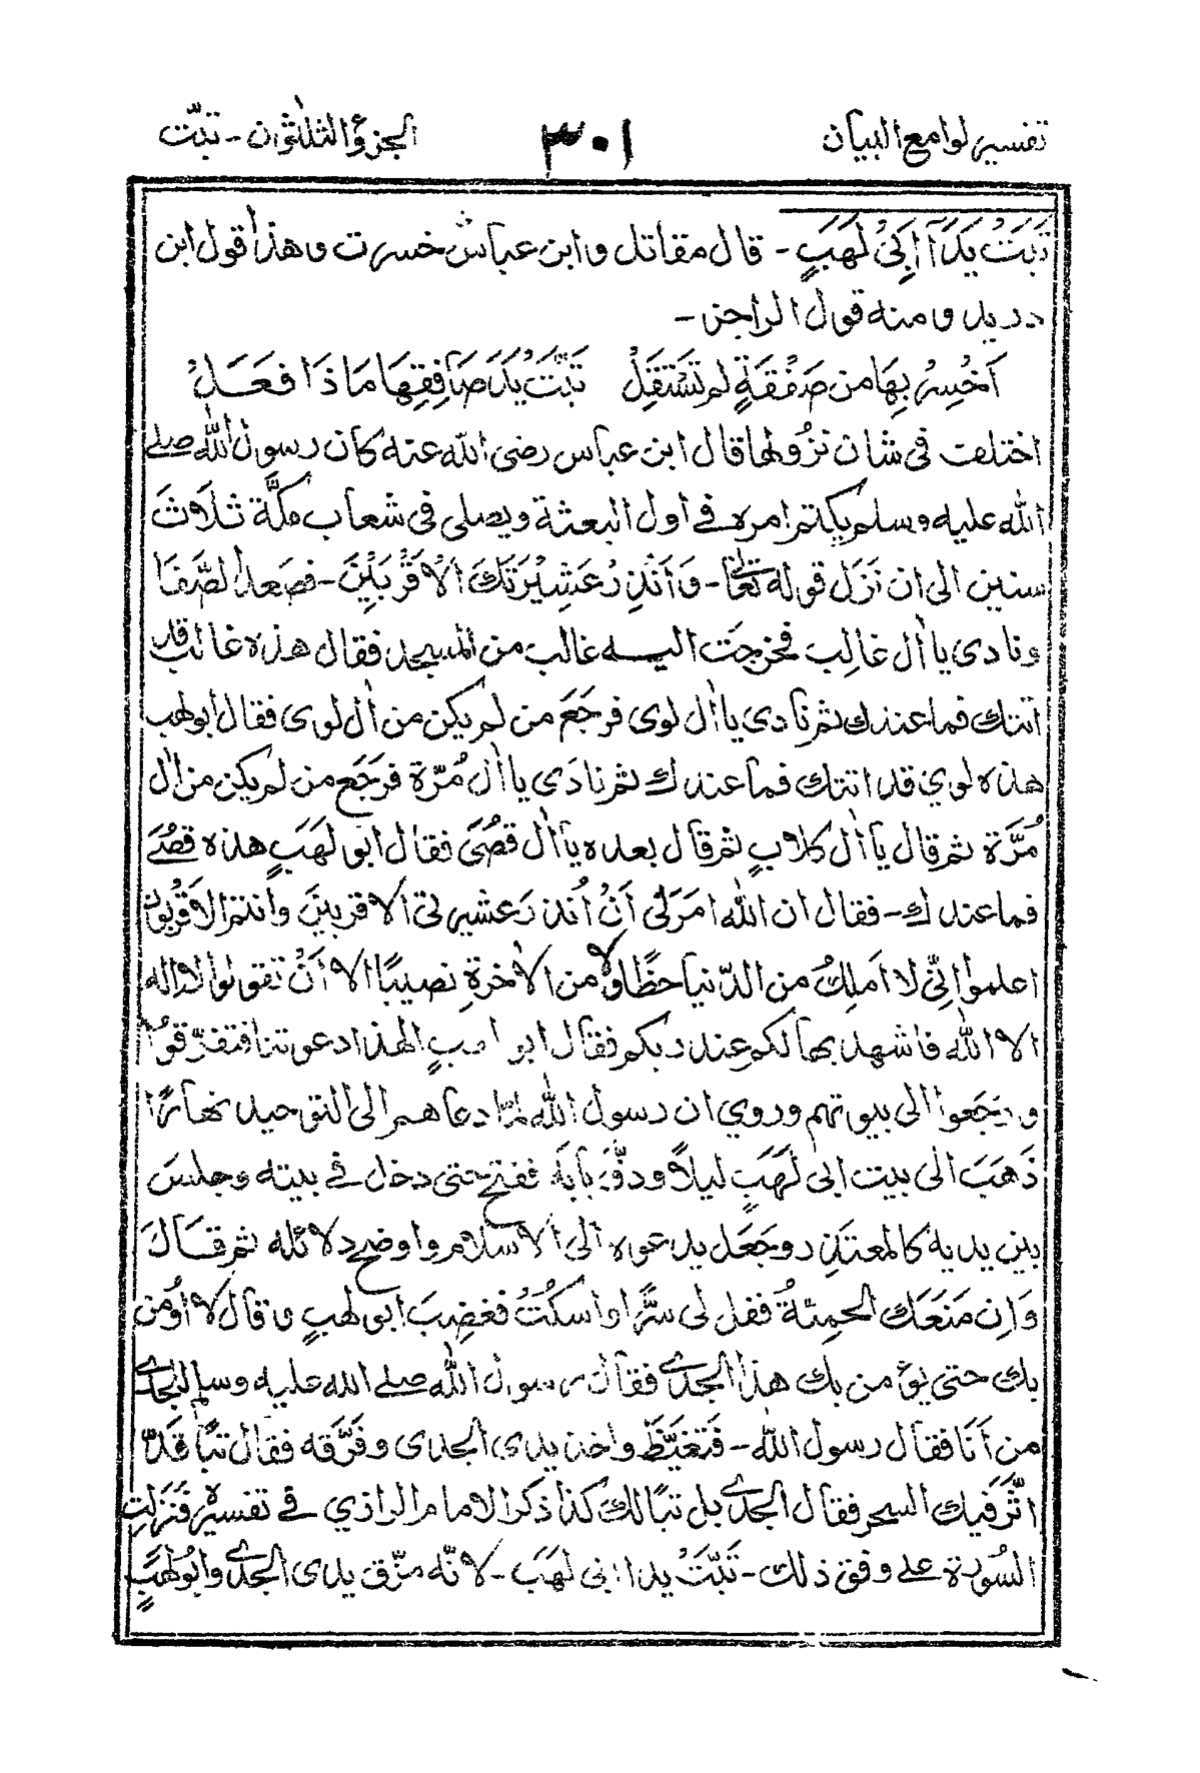 تفسير لوامع البيان ٣٠١ الجزؤ الثلٰثون - تبّت
تَبَّتْ يَدَآ اَبِىْ لَهَبٍ - قال مقاتل وابن عباسؓ خسرت وهذا قول ابن
دريد ومنه قول الراجز -
اَخْسِرْ بِهَا من صَفْقَةٍ لم تَسْتَقِلْ تَبَّتْ يَدَ صَافِقِهَا مَا ذَا فَعَلْ
اختلف فى شان نزُولها قال ابن عباس رضى الله عنه كان رسول الله صلے
الله عليه وسلم يكتم امره فے اول البعثة ويصلى فى شعاب مكَّة ثَلَاثَ
سنين الى ان نَزَل قوله تعالىٰ - وَاَنْذِرْ عَشِيْرَتَكَ الْاَقْرَبِيْنَ - فصَعد الصَّفَا
ونادى يا اٰل غالِب فخرجَت اليه غالب من المسجد فقال هذه غالب قد
اتتك فما عندك ثم نادى يا اٰل لوى فرجَعَ من لم يكن من اٰل لوى فقال ابو لهب
هذه لوي قد اتتك فما عندك ثم نادَى يا اٰل مُرّة فرجَع من لم يكن من اٰل
مُرَّة ثم قال يا اٰل كلابٍ ثم قال بعده يا اٰل قصُىّ فقال ابو لَهَبٍ هذه قصُےّ
فما عندك - فقال ان الله امرَنى اَنْ اُنذرَ عشيرتى الاقربينَ وانتم الاقربون
اعلموا اِنِّى لا اَملِكُ من الدّنيا حظًّا ولا من الاٰخرةِ نصيبًا الا اَنْ تقولوا لا اله
الا الله فاشهد بها لكم عِند ربكم فقال ابو لهبٍ الهذا دعوتنا فتفرّقوا
ورجَعوا الى بيوتهم وروي ان رسول الله لمّا دعاهم الى التوحيد نهارًا
ذَهَبَ الى بيت ابى لَهَبٍ ليلًا ودقَّ بابَه ففتح حتى دخل فے بيته وجلسَ
بين يديه كالمعتذِر وجَعَل يدعوه الى الاسلام واوضح دلائله ثم قالَ
وَاِن مَنَعَك الحمِيّةُ فقل لى سرًّا واسكُتْ فغضِبَ ابو لهبٍ وقال لا اُومن
بك حتى يؤمن بك هذا الجدے فقال رسول الله صلے الله عليه وسلم للجدے
من اَنَا فقال رسول الله - فَتَغَيَّظَ واخذ يدى الجدى وفَرَّقه فقال تبًّا قد
اَثَّرَ فيك السحر فقال الجدے بل تبًّا لك كذا ذكر الامام الرازي فے تفسيره فنَزلت
السُورة علے وفق ذلك - تَبَّتْ يدا ابى لهَبٍ - لانّه مزّق يدى الجدے وابو لهبٍ